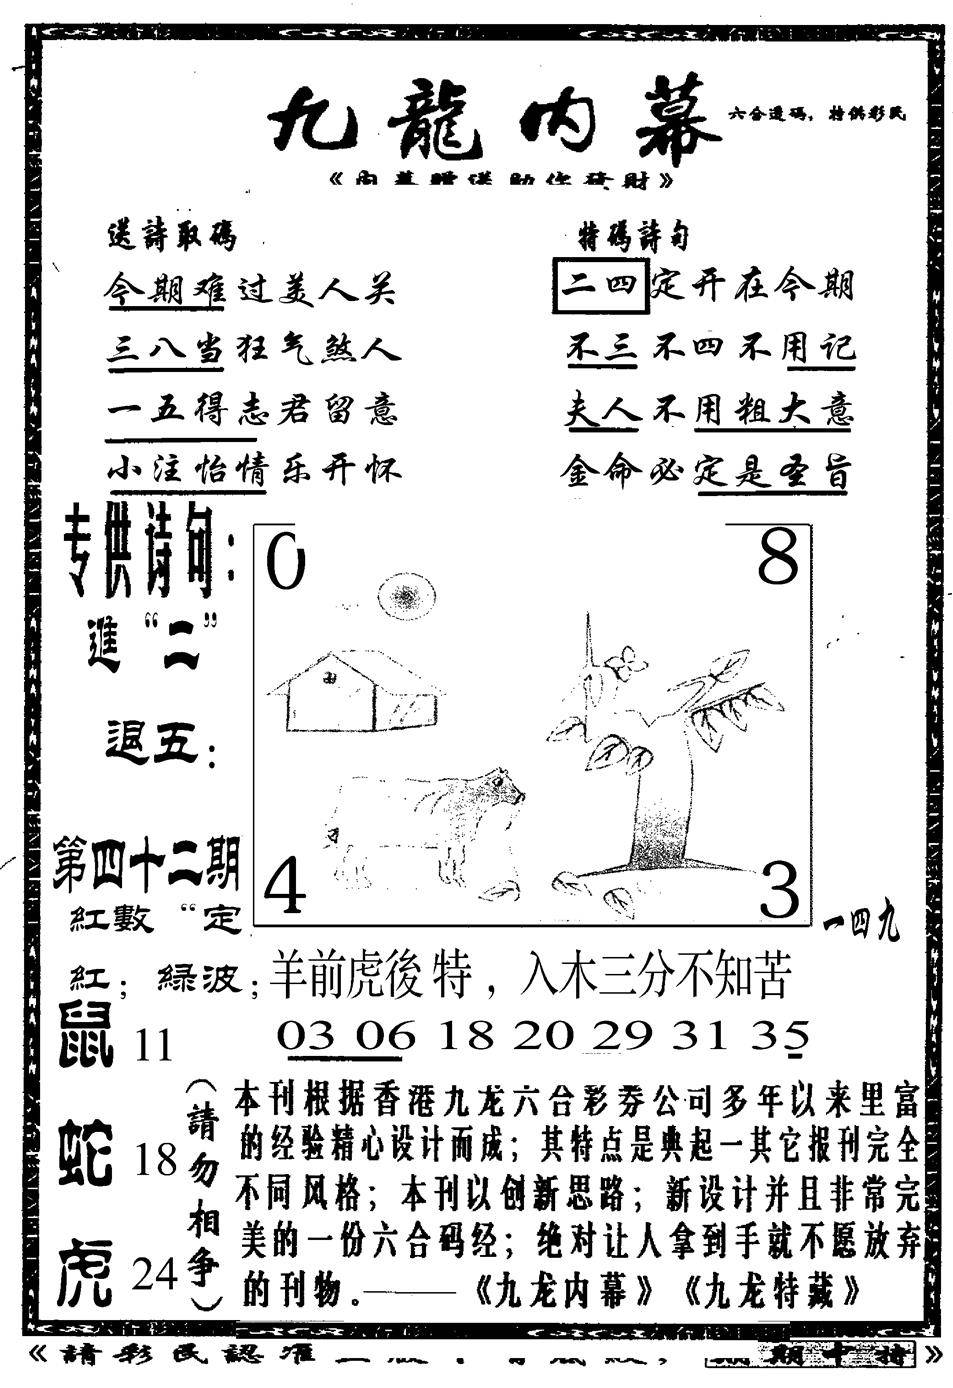 九龍内幕
六合透码，特供彩民
《内幕贈送助你發財》
送詩取碼
今期难过美人关
三八当狂气煞人
一五得志君留意
小注怡情乐开怀
特碼詩句
二四定开在今期
不三不四不用记
夫人不用粗大意
金命必定是圣旨
专供诗句：
進“二”
退五：
第四十二期
紅數“定
紅；綠波；
0 8
4 3
一四九
羊前虎後特，入木三分不知苦
03 06 18 20 29 31 35
鼠 11
蛇 18
虎 24
（請勿相争）
本刊根据香港九龙六合彩劵公司多年以来里富
的经验精心设计而成；其特点是典起一其它报刊完全
不同风格；本刊以创新思路；新设计并且非常完
美的一份六合码经；绝对让人拿到手就不愿放弃
的刊物。——《九龙内幕》《九龙特藏》
《請彩民認准